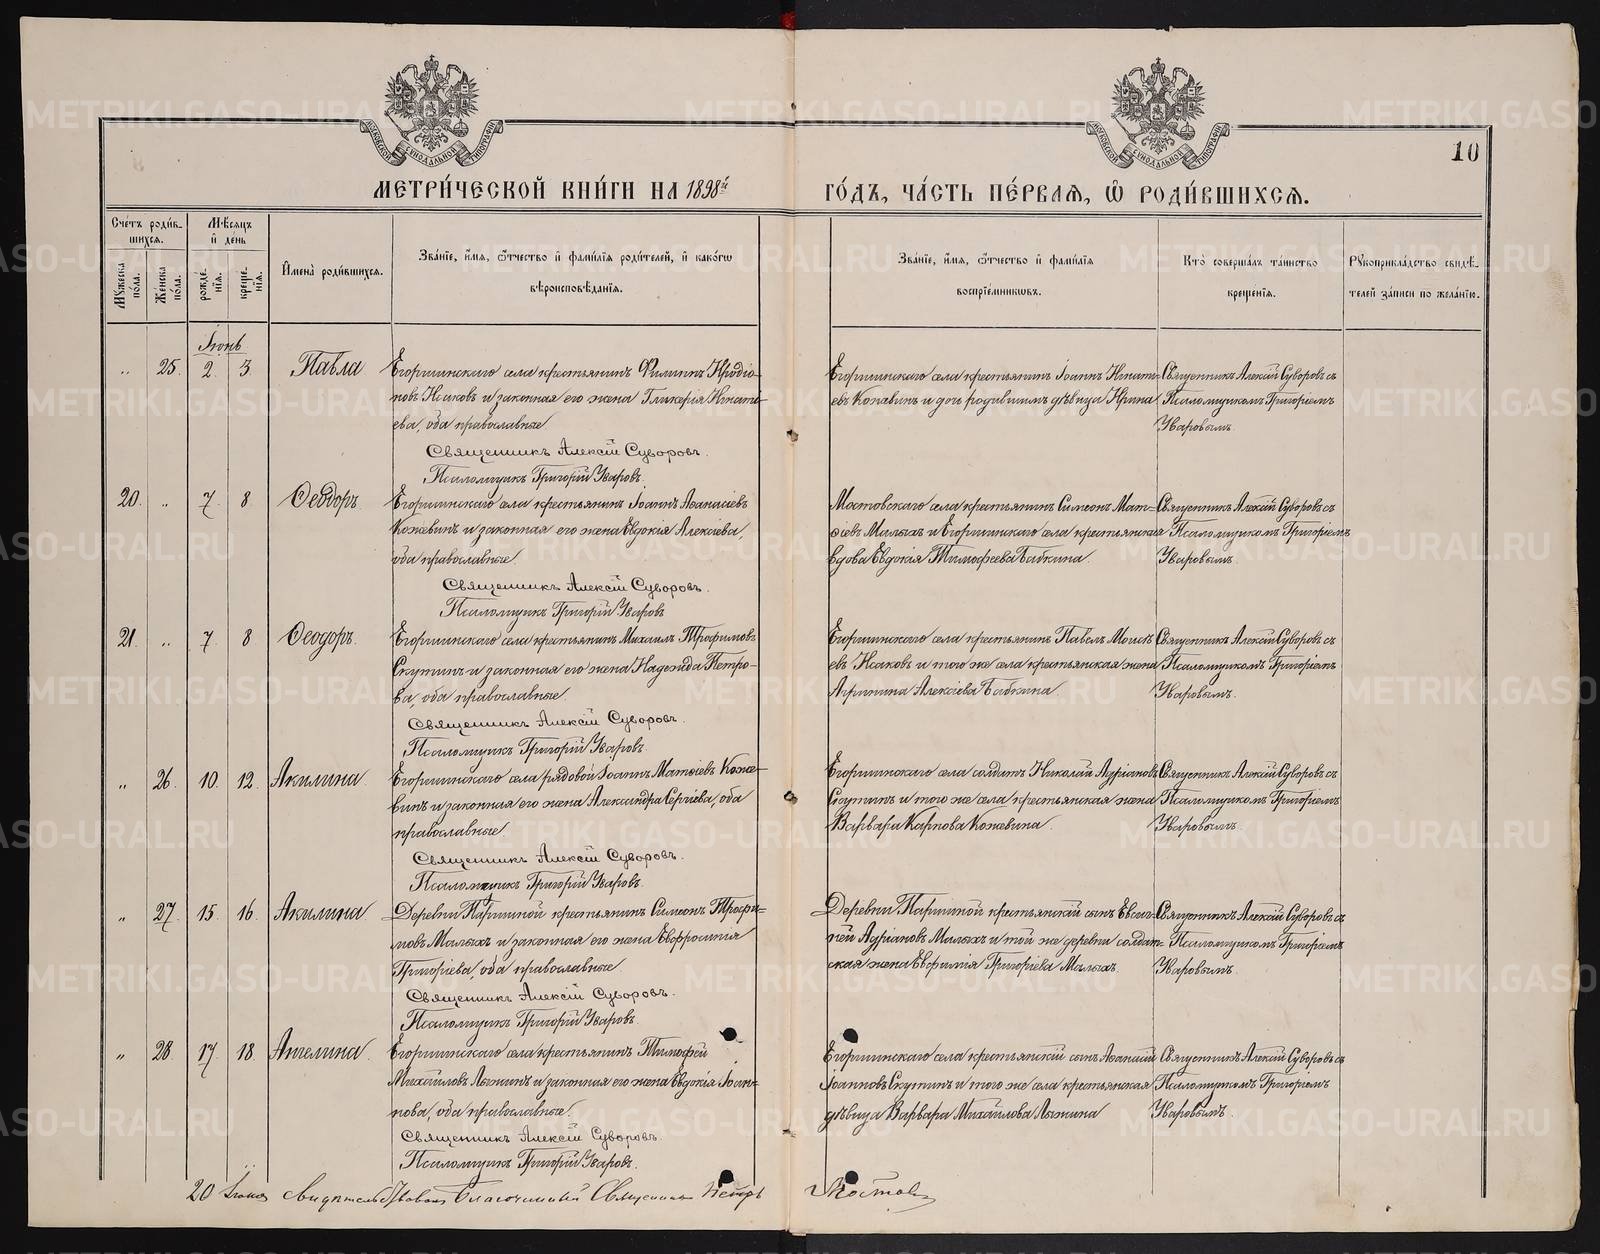 МОСКОВСКОЙ СѴНОДАЛЬНОЙ ТИПОГРАФІИ
МОСКОВСКОЙ СѴНОДАЛЬНОЙ ТИПОГРАФІИ
10
МЕТРИ́ЧЕСКОЙ КНИ́ГИ НА 1898й
ГО́ДЪ, ЧА́СТЬ ПЕ́РВАЯ, Ѡ РОДИ́ВШИХСЯ.
Сче́тъ роди́в-
шихся.
Мѣ́сяцъ
и де́нь
Мꙋ́жеска по́ла.
Же́нска по́ла.
рожде́нїя.
креще́нїя.
И҆мена̀ роди́вшихся.
Зва́нїе, и҆́мя, ѻ҆́тчество и҆ фами́лїя роди́телей, и҆ како́гѡ
вѣроисповѣ́данїя.
Зва́нїе, и҆́мя, ѻ҆́тчество и҆ фами́лїя
воспрїе́мникѡвъ.
Кто̀ соверша́лъ та́инство
креще́нїя.
Рꙋкоприкла́дство свидѣ́-
телей за́писи по жела́нїю.
Іюнь
„ 25. 2. 3. Павла
Егоршинскаго села крестьянинъ Филиппъ Иродіо-
новъ Исаковъ и законная его жена Гликерія Игнаті-
ева, оба православные
Священникъ Алексій Суворовъ.
Псаломщикъ Григорій Уваровъ.
Егоршинскаго села крестьянинъ Іоаннъ Игнаті-
евъ Копавинъ и дочь родившимъ дѣвица Ирина.
Священникъ Алексій Суворовъ съ
Псаломщикомъ Григоріемъ
Уваровымъ.
20. „ 7. 8 Ѳеодоръ
Егоршинскаго села крестьянинъ Іоаннъ Аѳанасіевъ
Кожевинъ и законная его жена Евдокія Алексіева,
оба православные
Священникъ Алексій Суворовъ.
Псаломщикъ Григорій Уваровъ
Мостовскаго села крестьянинъ Симеонъ Мат-
ѳіевъ Малыхъ и Егоршинскаго села крестьянская
вдова Евдокія Тимофеева Бабкина.
Священникъ Алексій Суворовъ съ
Псаломщикомъ Григоріемъ
Уваровымъ.
21. „ 7. 8 Ѳеодоръ.
Егоршинскаго села крестьянинъ Михаилъ Трофимовъ
Скутинъ и законная его жена Надежда Петро-
ва, оба православные.
Священникъ Алексій Суворовъ.
Псаломщикъ Григорій Уваровъ.
Егоршинскаго села крестьянинъ Павелъ Моисѣ-
евъ Исаковъ и того же села крестьянская жена
Агрипина Алексіева Бабкина.
Священникъ Алексій Суворовъ съ
Псаломщикомъ Григоріемъ
Уваровымъ.
„ 26. 10. 12. Акилина.
Егоршинскаго села рядовой Іоаннъ Матѳіевъ Коже-
винъ и законная его жена Александра Сергіева, оба
православные.
Священникъ Алексій Суворовъ.
Псаломщикъ Григорій Уваровъ.
Егоршинскаго села солдатъ Николай Адріановъ
Скутинъ и того же села крестьянская жена
Варвара Карпова Кожевина.
Священникъ Алексій Суворовъ съ
Псаломщикомъ Григоріемъ
Уваровымъ.
„ 27. 15. 16. Акилина.
Деревни Паршиной крестьянинъ Симеонъ Трофи-
мовъ Малыхъ и законная его жена Евфросинія
Григоріева, оба православные.
Священникъ Алексій Суворовъ.
Псаломщикъ Григорій Уваровъ.
Деревни Паршиной крестьянскій сынъ Евге-
ній Адріановъ Малыхъ и той же деревни солдат-
ская жена Евфимія Григоріева Малыхъ.
Священникъ Алексій Суворовъ съ
Псаломщикомъ Григоріемъ
Уваровымъ.
„ 28. 17. 18. Ангелина.
Егоршинскаго села крестьянинъ Тимофей
Михайловъ Лыжинъ и законная его жена Евдокія Іоан-
нова, оба православные.
Священникъ Алексій Суворовъ.
Псаломщикъ Григорій Уваровъ.
Егоршинскаго села крестьянскій сынъ Аѳанасій
Іоанновъ Скутинъ и того же села крестьянская
дѣвица Варвара Михайлова Лыжина
Священникъ Алексій Суворовъ съ
Псаломщикомъ Григоріемъ
Уваровымъ.
20 Іюня Свидѣтельствовалъ Благочинный Священникъ Петръ Мостовъ
METRIKI.GASO-URAL.RU